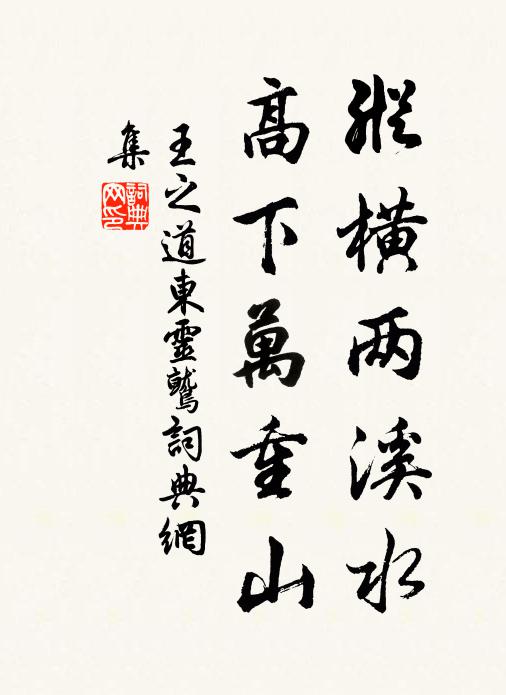 縱橫两溪水
高下萬重山
王之道東靈鷲詞典網
集
詞典網印